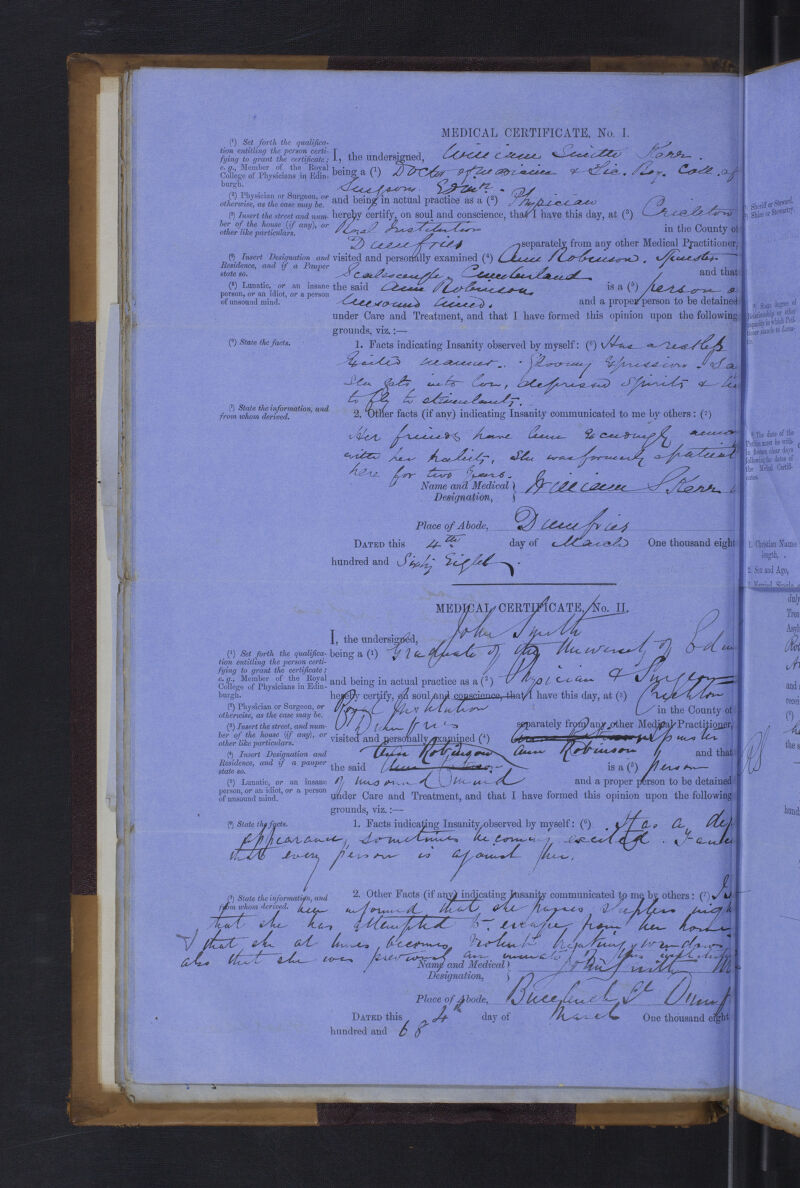 MEDICAL CERTIFICATE, No. I.
(¹) Set forth the qualifica-
tion entitling the person certi-
fying to grant the certificate;
e.g., Member of the Royal
College of Physicians in Edin-
burgh.
(²) Physician or Surgeon, or
otherwise, as the case may be.
(³) Insert the street and num-
ber of the house (if any), or
other like particulars.
(⁴) Insert Designation and
Residence, and if a Pauper
state so.
(⁵) Lunatic, or an insane
person, or an idiot, or a person
of unsound mind.
(⁶) State the facts.
(⁷) State the information, and
from whom derived.
I, the undersigned, William Smith Kerr.
being a (¹) Doctor of Medicine & Lic. Roy. Coll. of
Surgeons Edinr.
and being in actual practice as a (²) Physician
hereby certify, on soul and conscience, that I have this day, at (³) Crichton
Royal Institution in the County of
Dumfries separately from any other Medical Practitioner,
visited and personally examined (⁴) Ann Robinson. Spinster
Cumberland and that
the said Ann Robinson is a (⁵) person o
unsound mind. and a proper person to be detained
under Care and Treatment, and that I have formed this opinion upon the following
grounds, viz.:—
1. Facts indicating Insanity observed by myself: (⁶) Has a restless
excited manner. Gloomy expression.
She gets into low, depressed spirits &
to fly to stimulants.
2. Other facts (if any) indicating Insanity communicated to me by others: (⁷)
Her friends have been exceedingly
with her habits. She was formerly a patient
here for two years.
Name and Medical Designation, William S Kerr
Place of Abode, Dumfries
DATED this 4th day of March One thousand eight
hundred and Sixty Eight.
MEDICAL CERTIFICATE, No. II.
(¹) Set forth the qualifica-
tion entitling the person certi-
fying to grant the certificate:
e.g., Member of the Royal
College of Physicians in Edin-
burgh.
(²) Physician or Surgeon, or
otherwise, as the case may be.
(³) Insert the street and num-
ber of the house (if any), or
other like particulars.
(⁴) Insert Designation and
Residence, and if a pauper
state so.
(⁵) Lunatic, or an insane
person, or an idiot, or a person
of unsound mind.
(⁶) State the facts.
(⁷) State the information, and
from whom derived.
I, the undersigned, John Smith
being a (¹) Graduate of the University of Edin
and being in actual practice as a (²) Physician & Surgeon
hereby certify, on soul and conscience, that I have this day, at (³) Crichton
Royal Institution in the County of
Dumfries separately from any other Medical Practitioner,
visited and personally examined (⁴) Spinster
Ann Robinson Ann Robinson and that
the said is a (⁵) person
of unsound mind and a proper person to be detained
under Care and Treatment, and that I have formed this opinion upon the following
grounds, viz.:—
1. Facts indicating Insanity observed by myself: (⁶) Has a
appearance, sometimes becoming excited.
that every person is against her.
2. Other Facts (if any) indicating Insanity communicated to me by others: (⁷)
been informed that she passes sleepless nigh
that she has attempted to escape from her home
& that she at times becomes violent breaking windows
also that she was previously an inmate of this institution
Name and Medical Designation, John Smith
Place of Abode, Buccleuch St Dumf
DATED this 4th day of March One thousand eight
hundred and 68